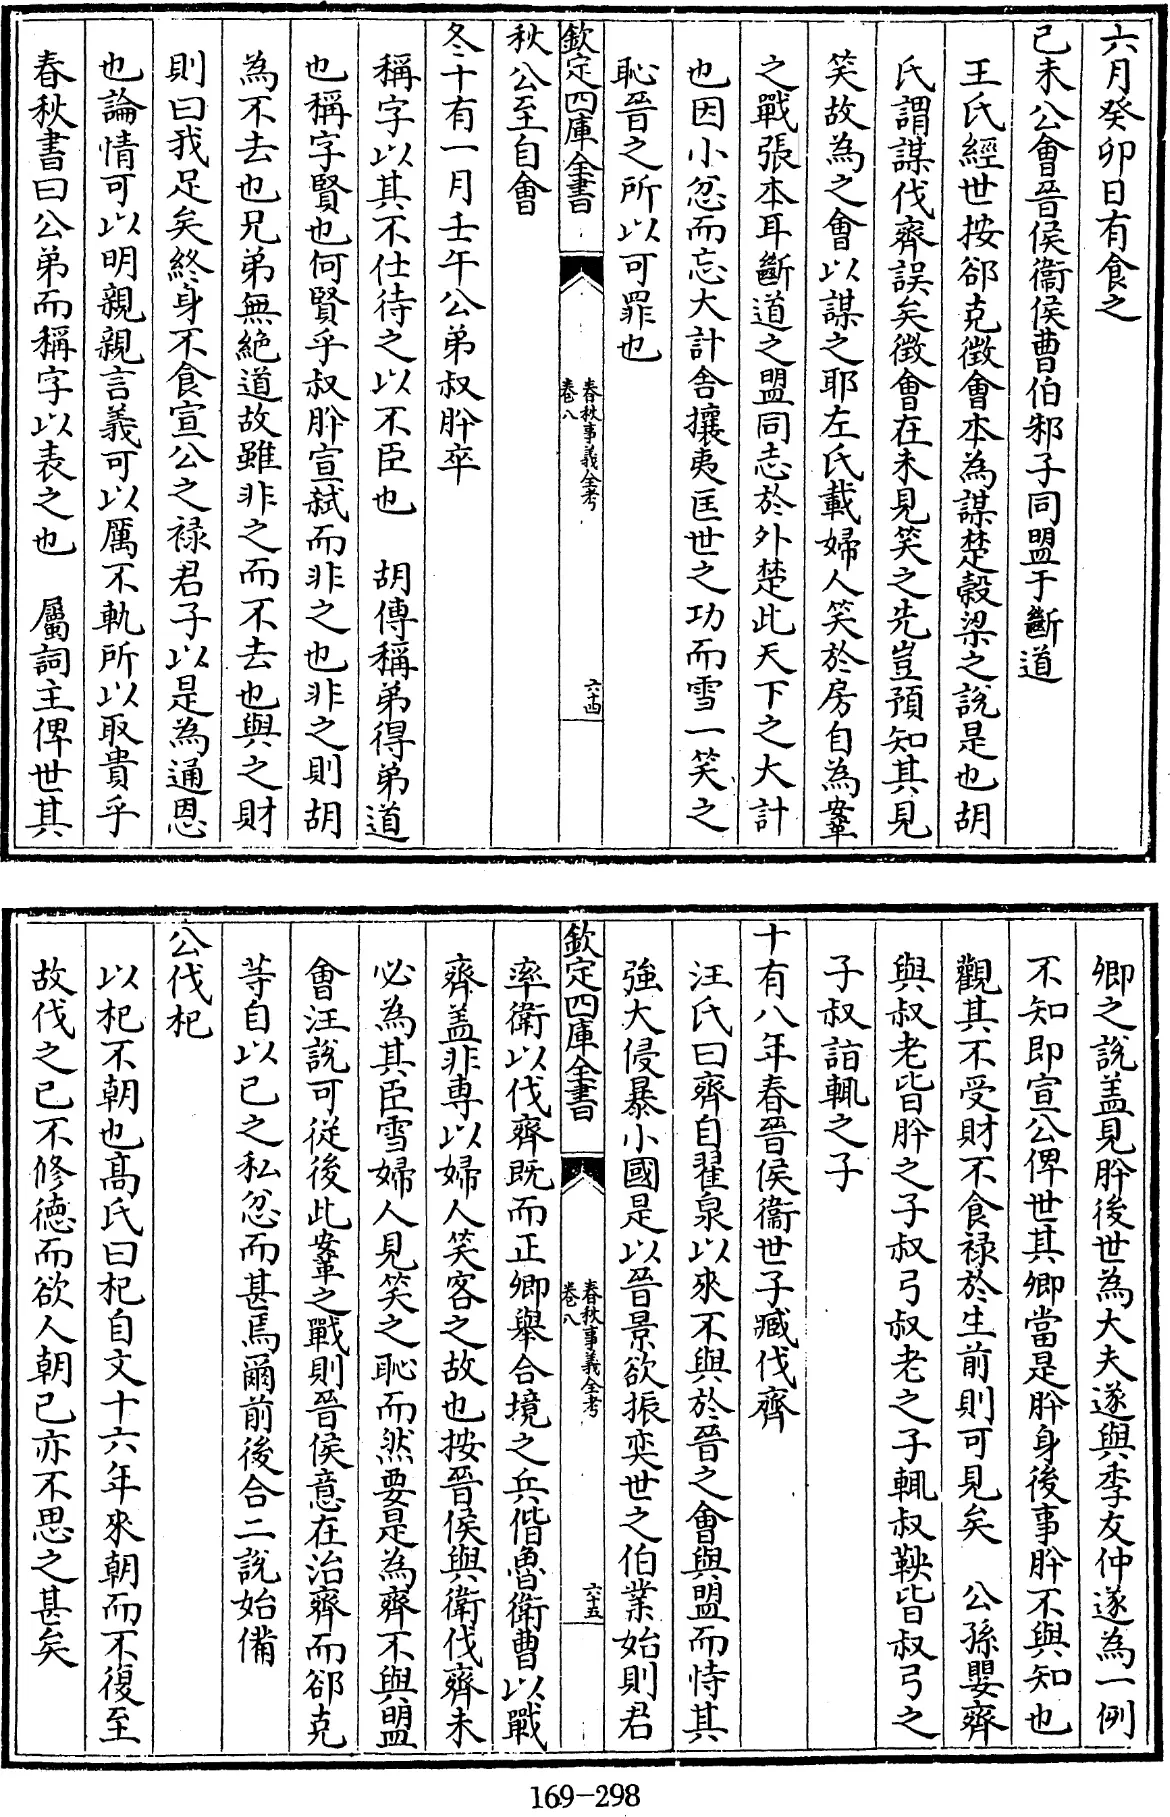 六月癸卯日有食之
己未公會晉侯衞侯曹伯邾子同盟于斷道
王氏經世按郤克徴會本為謀楚榖梁之說是也胡
氏謂謀伐齊誤矣徴會在未見笑之先豈預知其見
笑故為之會以謀之耶左氏載婦人笑於房自為鞌
之戰張本耳斷道之盟同志於外楚此天下之大計
也因小忿而忘大計舍攘夷匡世之功而雪一笑之
恥晉之所以可罪也
欽定四庫全書
春秋事義全考
卷八
六十四
秋公至自會
冬十有一月壬午公弟叔肸卒
稱字以其不仕待之以不臣也 胡傳稱弟得弟道
也稱字賢也何賢乎叔肸宣弑而非之也非之則胡
為不去也兄弟無絶道故雖非之而不去也與之財
則曰我足矣終身不食宣公之禄君子以是為通恩
也論情可以明親親言義可以厲不軌所以取貴乎
春秋書曰公弟而稱字以表之也 屬詞主俾世其
卿之說盖見肸後世為大夫遂與季友仲遂為一例
不知即宣公俾世其卿當是肸身後事肸不與知也
觀其不受財不食禄於生前則可見矣 公孫嬰齊
與叔老皆肸之子叔弓叔老之子輒叔鞅皆叔弓之
子叔詣輒之子
十有八年春晉侯衞世子臧伐齊
汪氏曰齊自翟泉以來不與於晉之會與盟而恃其
強大侵暴小國是以晉景欲振奕世之伯業始則君
欽定四庫全書
春秋事義全考
卷八
六十五
率衛以伐齊既而正卿舉合境之兵偕魯衛曹以戰
齊盖非専以婦人笑客之故也按晉侯與衛伐齊未
必為其臣雪婦人見笑之恥而然要是為齊不與盟
會汪說可従後此鞌之戰則晉侯意在治齊而郤克
等自以己之私忿而甚焉爾前後合二說始備
公伐杞
以杞不朝也髙氏曰杞自文十六年來朝而不復至
故伐之已不修徳而欲人朝己亦不思之甚矣
169-298